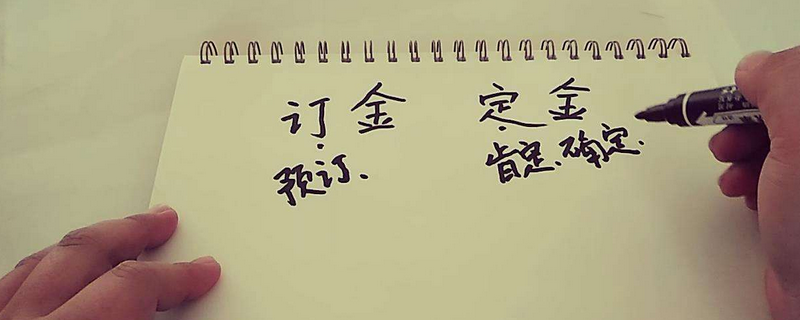 订金 定金
预订. 肯定.确定.